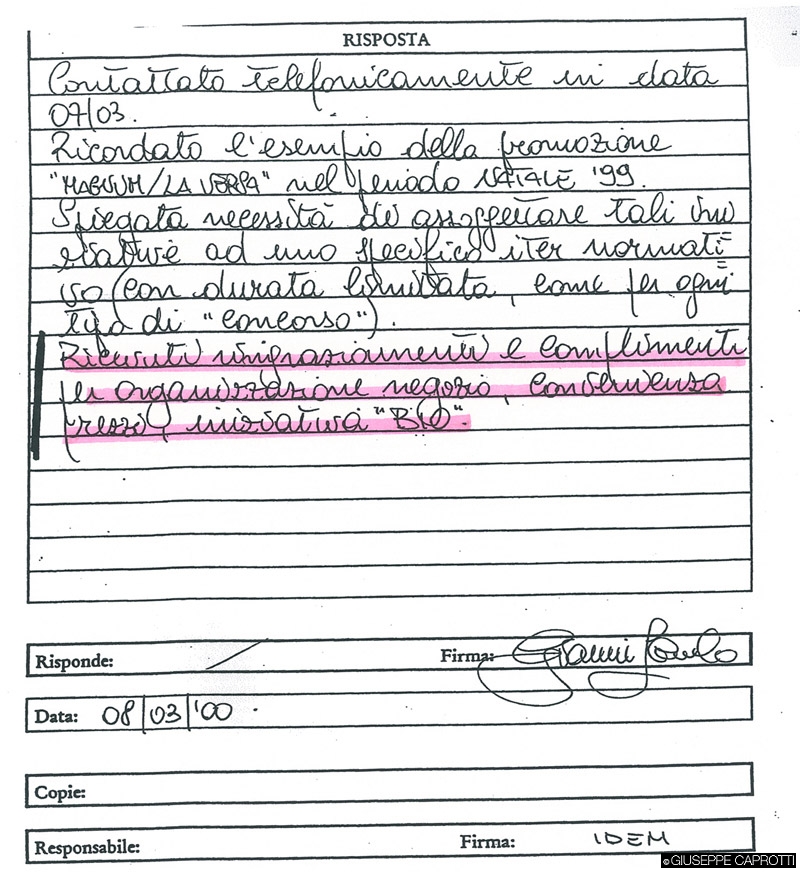 RISPOSTA
Contattato telefonicamente in data
07/03.
Ricordato l'esempio della promozione
"MAGNUM/LA VERSA" nel periodo NATALE '99.
Spiegata necessità di assoggettare tali ini
ziative ad uno specifico iter normati=
vo (con durata limitata, come per ogni
tipo di "concorso").
Ricevuti ringraziamenti e complimenti
per organizzazione negozio, convenienza
prezzi, iniziativa "BIO".
Risponde: /
Firma: Gianni Paolo
Data: 08/03/'00.
Copie:
Responsabile:
Firma: IDEM
© GIUSEPPE CAPROTTI